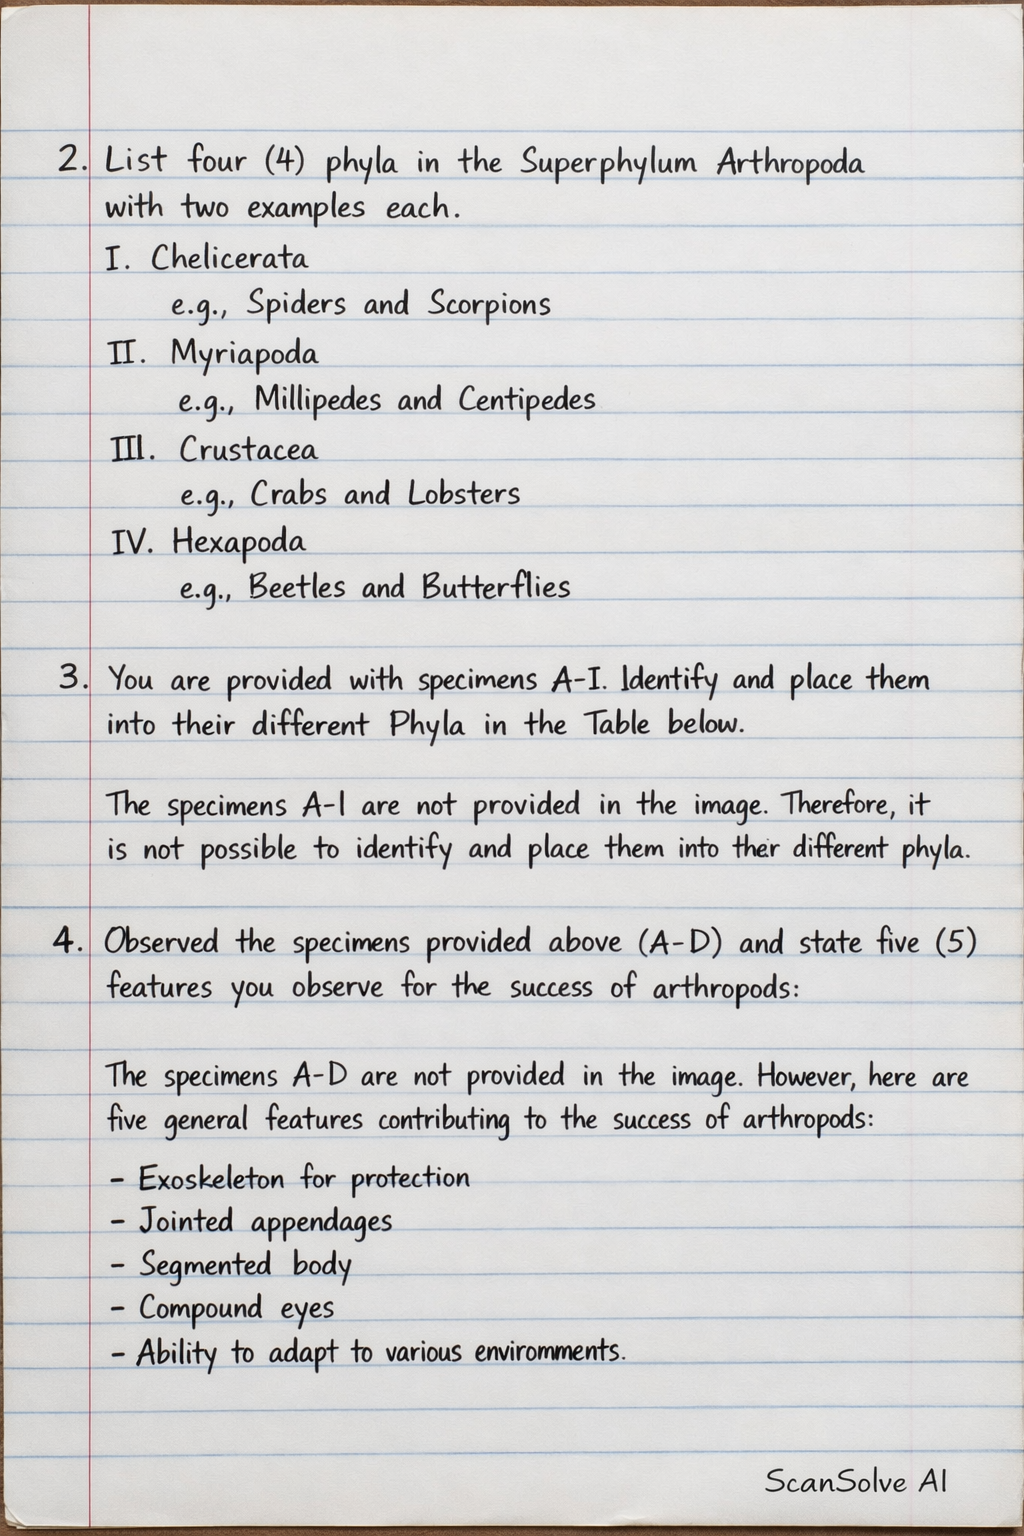 2. List four (4) phyla in the Superphylum Arthropoda
with two examples each.
I. Chelicerata
e.g., Spiders and Scorpions
II. Myriapoda
e.g., Millipedes and Centipedes
III. Crustacea
e.g., Crabs and Lobsters
IV. Hexapoda
e.g., Beetles and Butterflies
3. You are provided with specimens A-I. Identify and place them
into their different Phyla in the Table below.
The specimens A-I are not provided in the image. Therefore, it
is not possible to identify and place them into their different phyla.
4. Observed the specimens provided above (A-D) and state five (5)
features you observe for the success of arthropods:
The specimens A-D are not provided in the image. However, here are
five general features contributing to the success of arthropods:
- Exoskeleton for protection
- Jointed appendages
- Segmented body
- Compound eyes
- Ability to adapt to various enviromments.
ScanSolve AI